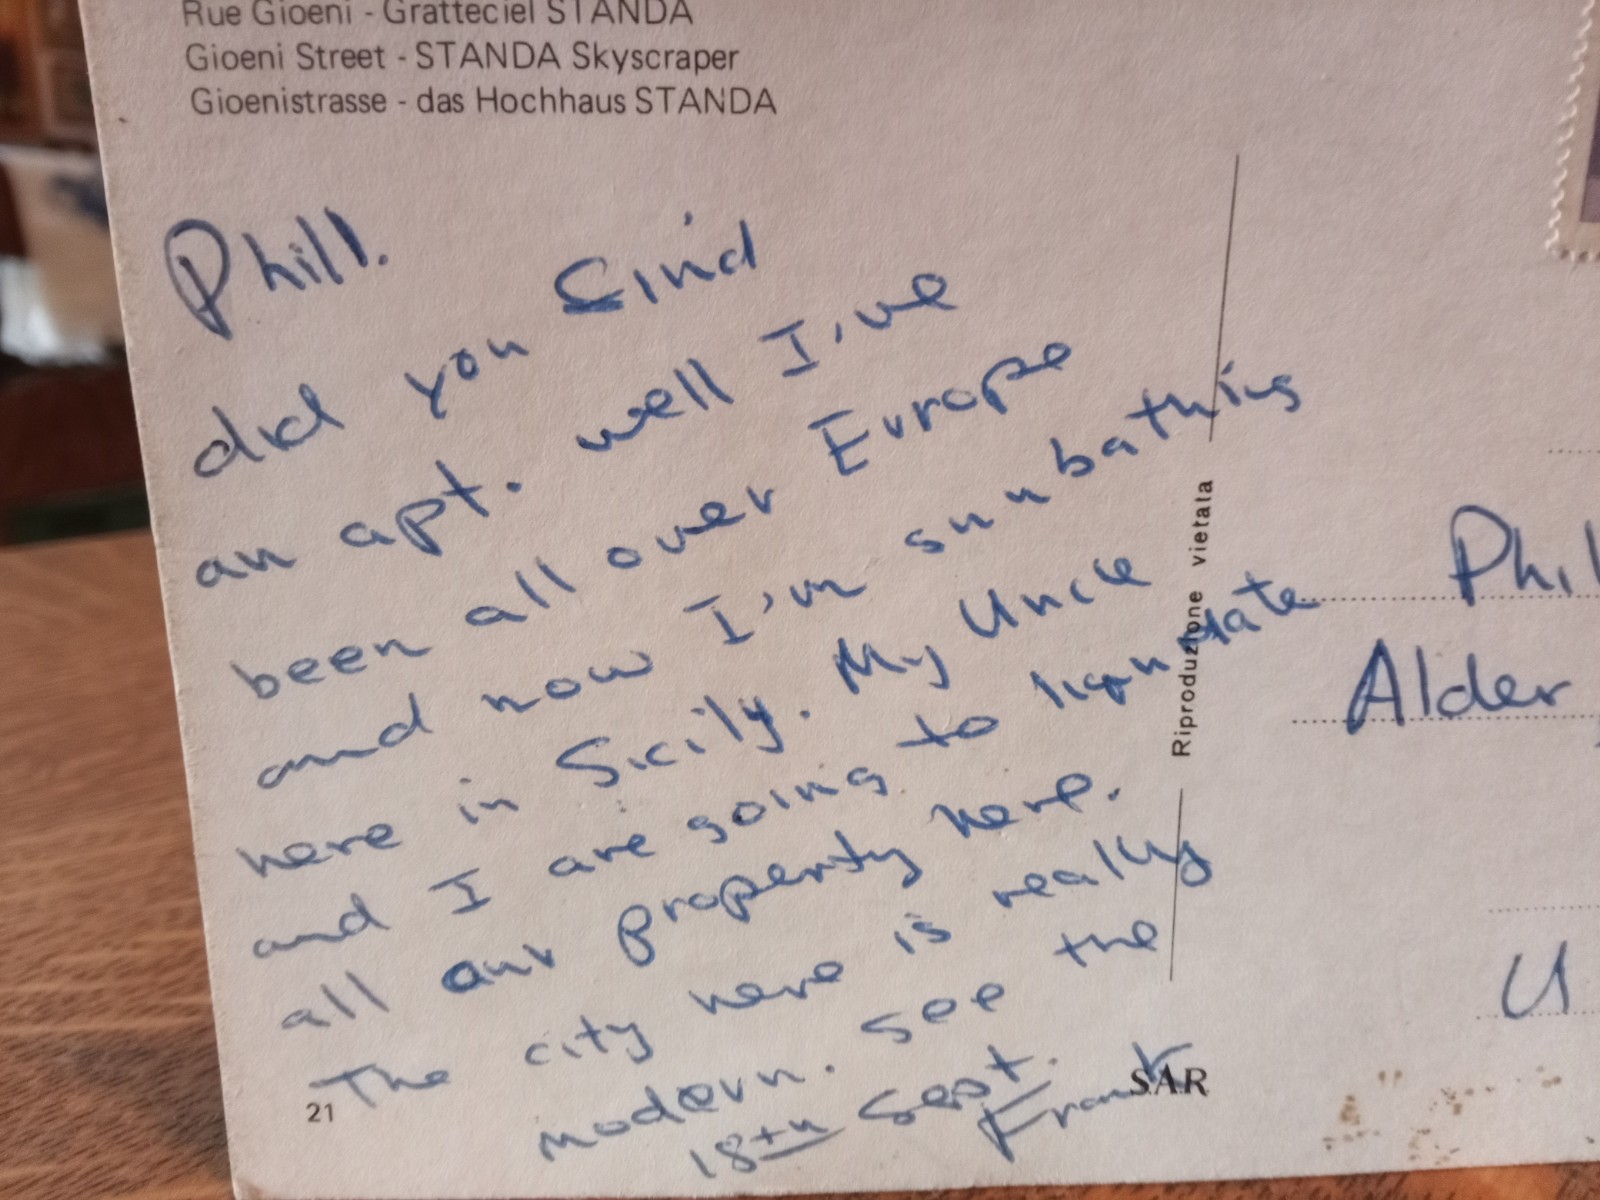 Rue Gioeni - Gratteciel STANDA
Gioeni Street - STANDA Skyscraper
Gioenistrasse - das Hochhaus STANDA
Phill.
did you find
an apt. well I've
been all over Europe
and now I'm sunbathing
here in Sicily. My Uncle
and I are going to liquidate
all our property here.
The city here is really
modern. See the
18th Sept.
Frank
21
SAR
Riproduzione vietata
Phil
Alder
U